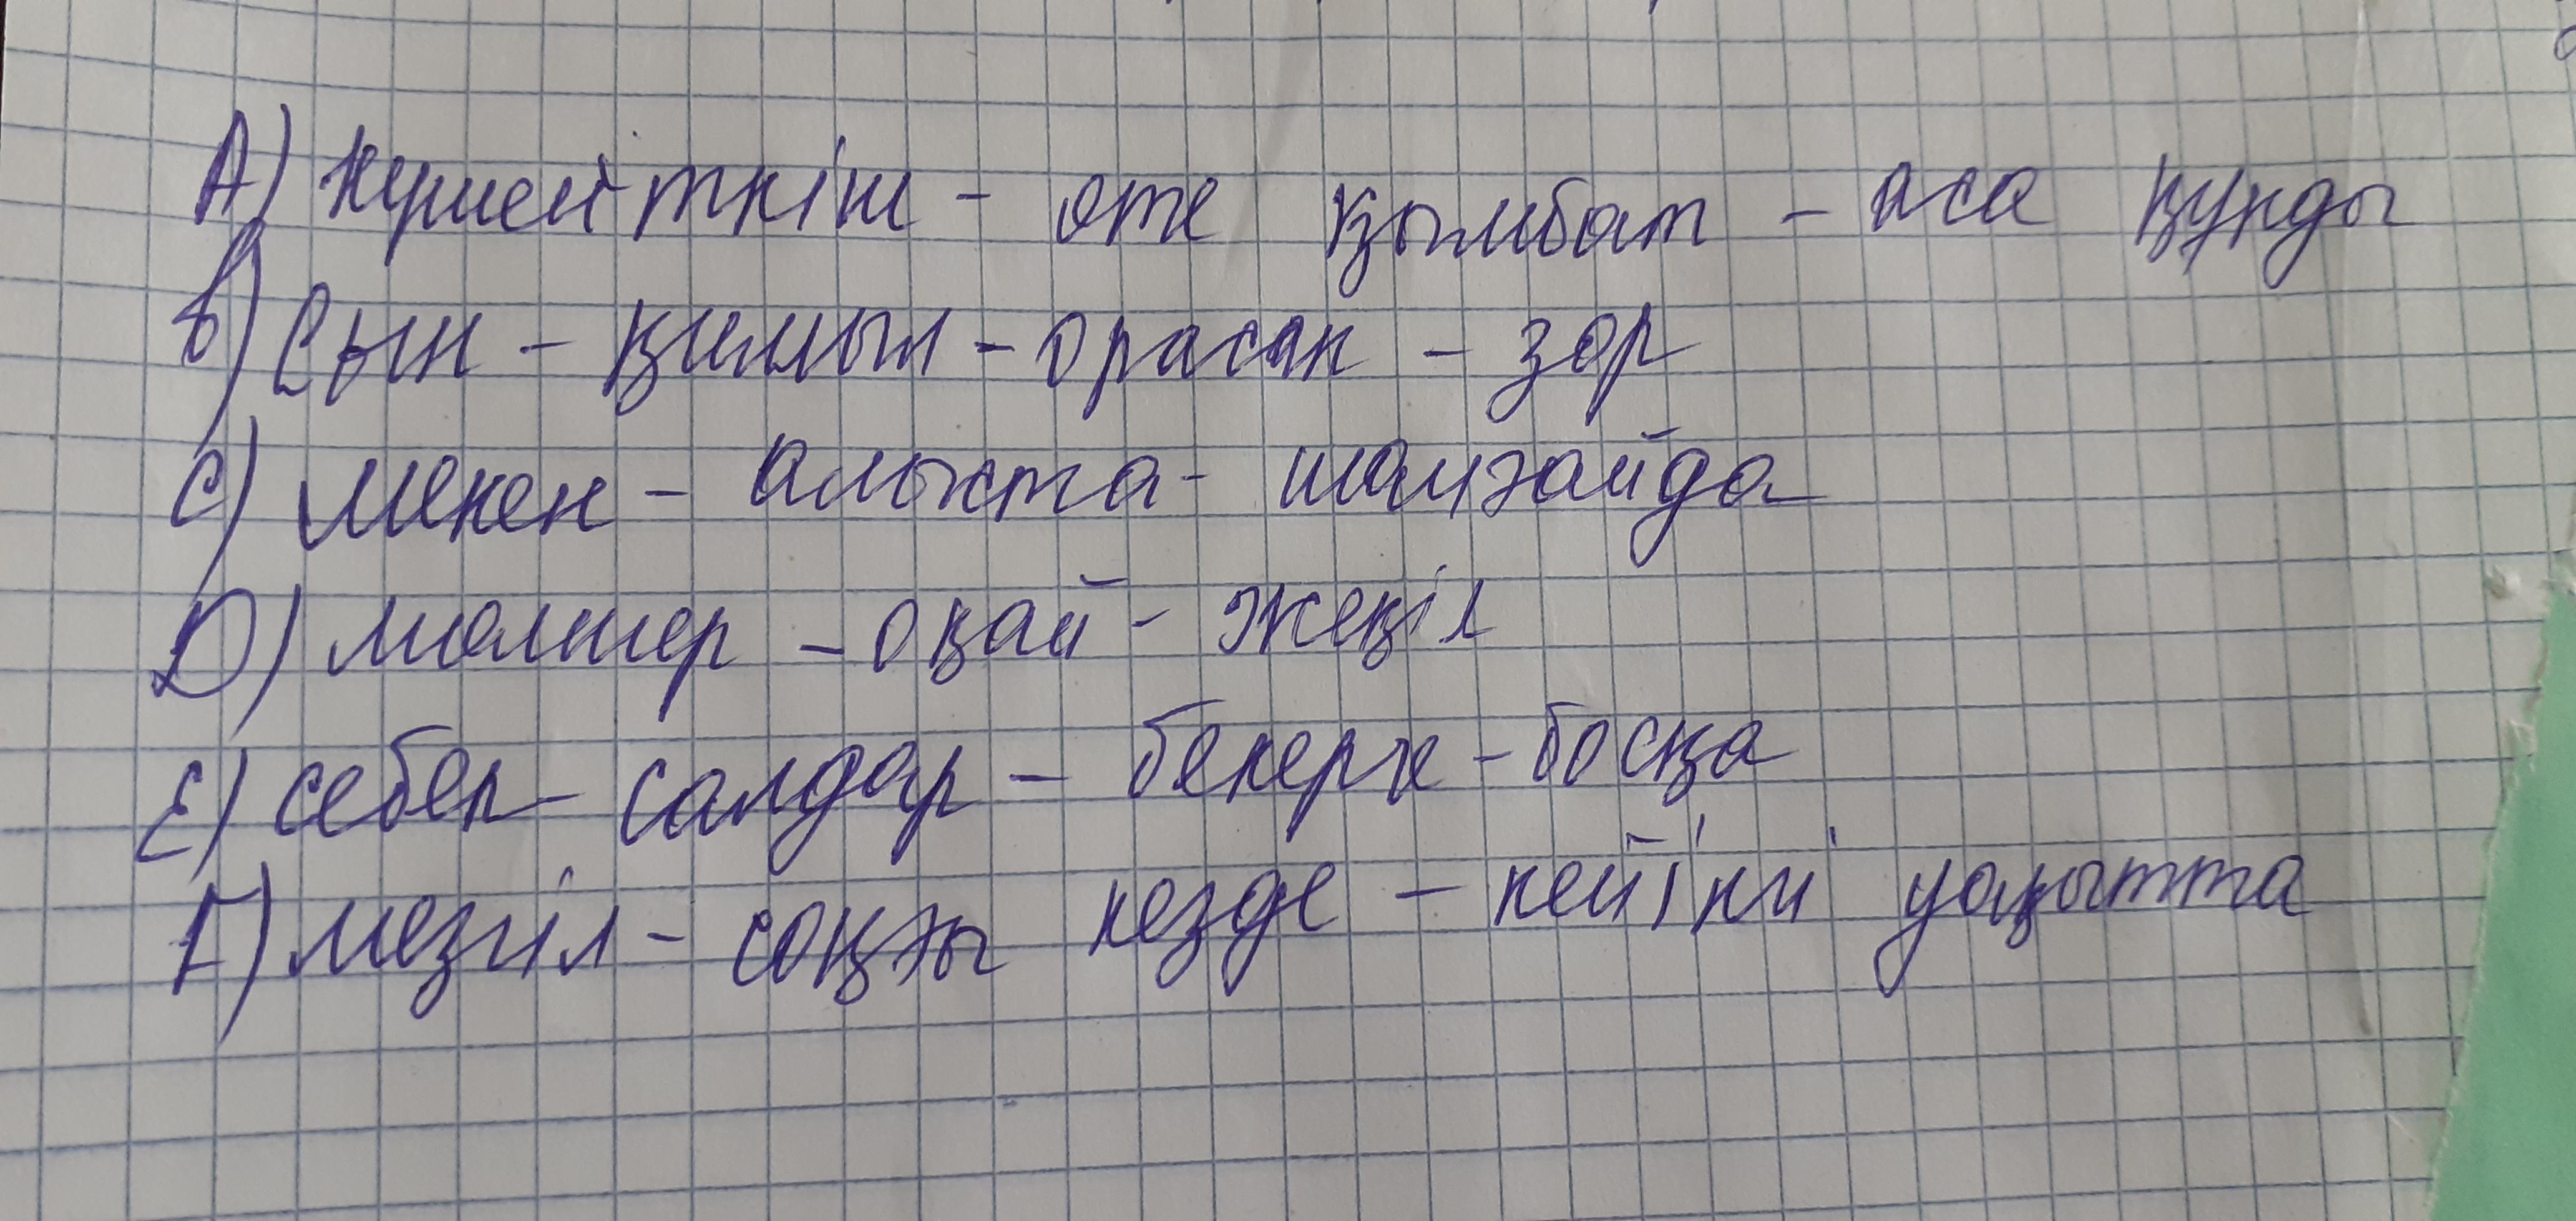 А) күшейткіш - өте қымбат - аса құнды
В) Сын - қимыл - орасан - зор
С) мекен - алыста - шалғайда
D) мөлшер - оңай - жеңіл
Е) себеп - салдар - бекерге - босқа
F) мезгіл - соңғы кезде - кейінгі уақытта